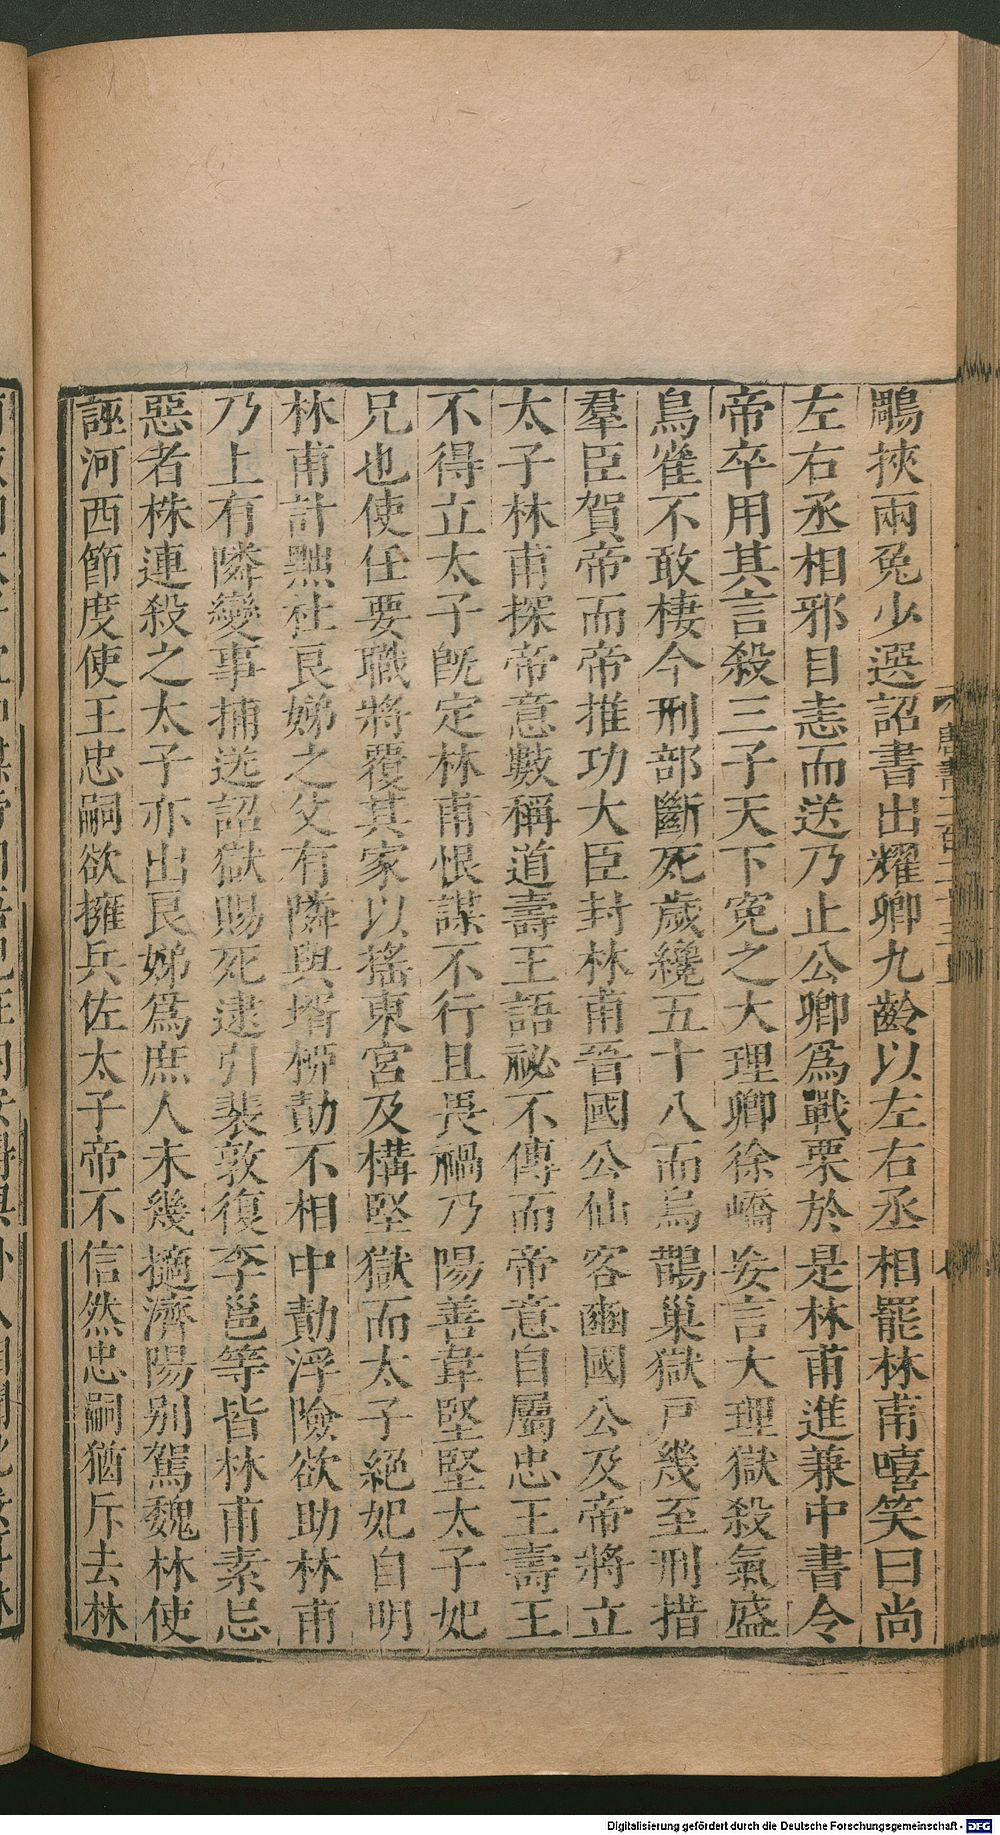 鵰挾兩兔少選詔書出耀卿九齡以左右丞相罷林甫嘻笑曰尚
左右丞相邪目恚而送乃止公卿爲戰栗於是林甫進兼中書令
帝卒用其言殺三子天下冤之大理卿徐嶠妄言大理獄殺氣盛
鳥雀不敢棲今刑部斷死歲纔五十八而烏鵲巢獄戸幾至刑措
羣臣賀帝而帝推功大臣封林甫晉國公仙客豳國公及帝將立
太子林甫探帝意數稱道壽王語祕不傳而帝意自屬忠王壽王
不得立太子旣定林甫恨謀不行且畏禍乃陽善韋堅堅太子妃
兄也使任要職將覆其家以搖東宮及構堅獄而太子絕妃自明
林甫計黜杜良娣之父有隣與壻柳勣不相中勣浮險欲助林甫
乃上有隣變事捕送詔獄賜死逮引裴敦復李邕等皆林甫素忌
惡者株連殺之太子亦出良娣爲庶人未幾擿濟陽別駕魏林使
誣河西節度使王忠嗣欲擁兵佐太子帝不信然忠嗣猶斥去林
Digitalisierung gefördert durch die Deutsche Forschungsgemeinschaft - DFG